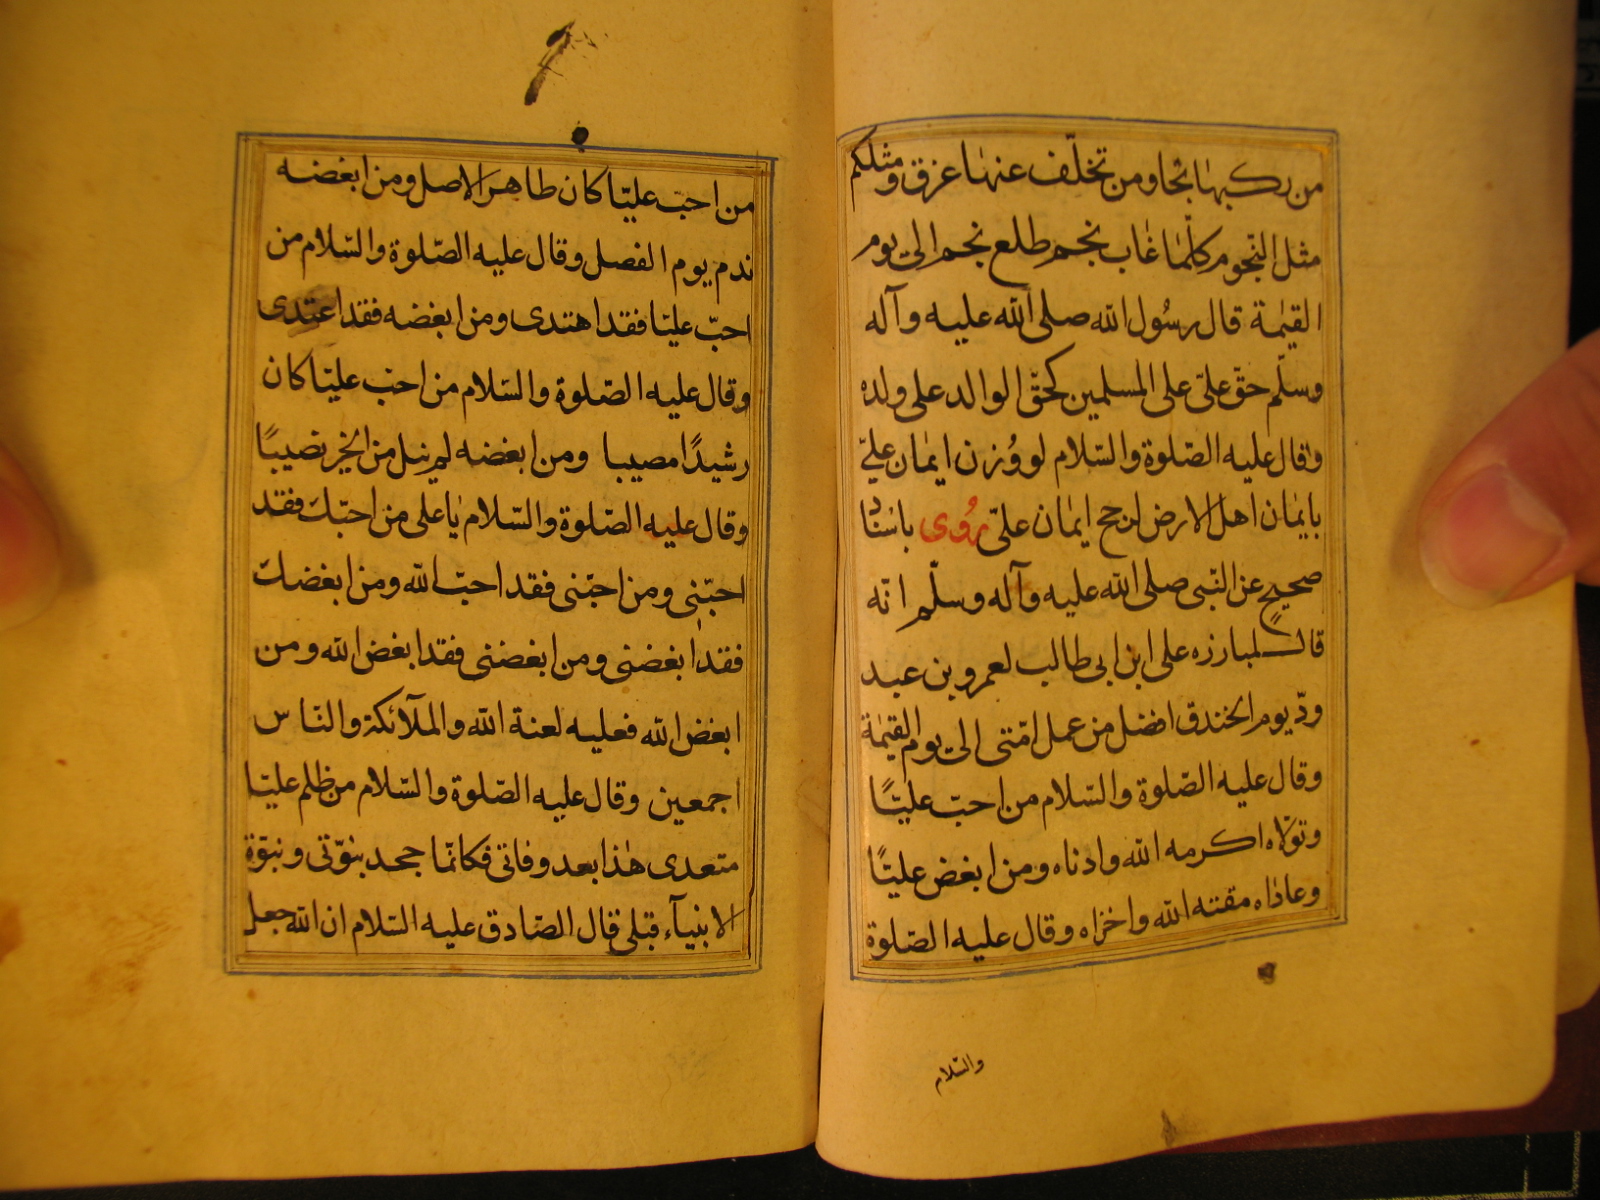 من ركبها نجا ومن تخلّف عنها غرق ومثلكم
مثل النّجوم كلّما غاب نجم طلع نجم الى يوم
القيمة قال رسول الله صلى الله عليه وآله
وسلّم حقّ علىّ على المسلمين كحقّ الوالد على ولده
وقال عليه الصّلوة والسّلام لو وُزن ايمان علىّ
بايمان اهل الارض لرجح ايمان علىّ رُوى باسناد
صحيحٍ عن النّبى صلى الله عليه وآله وسلّم انّه
قال لمبارزه على ابن ابى طالب لعمرو بن عبد
ودّ يوم الخندق افضل من عمل امّتى الى يوم القيمة
وقال عليه الصّلوة والسّلام من احبّ عليّاً
وتولّاه اكرمه الله وادناه ومن ابغض عليّاً
وعاداه مقته الله واخزاه وقال عليه الصّلوة
والسّلام
من احبّ عليّا كان طاهر الاصل ومن ابغضه
ندم يوم الفصل وقال عليه الصّلوة والسّلام من
احبّ عليّا فقد اهتدى ومن ابغضه فقد اعتدى
وقال عليه الصّلوة والسّلام من احبّ عليّا كان
رشيدًا مصيبا ومن ابغضه لم ينل من الخير نصيبًا
وقال عليه الصّلوة والسّلام يا على من احبّك فقد
احبّنى ومن احبّنى فقد احبّ الله ومن ابغضك
فقد ابغضنى ومن ابغضنى فقد ابغض الله ومن
ابغض الله فعليه لعنة الله والملآئكة والنّاس
اجمعين وقال عليه الصّلوة والسّلام من ظلم عليّا
متعدى هذا بعد وفاتى فكانّما جحد بنوّتى ونبوّة
الانبيآء قبلى قال الصّادق عليه السّلام ان الله جعل